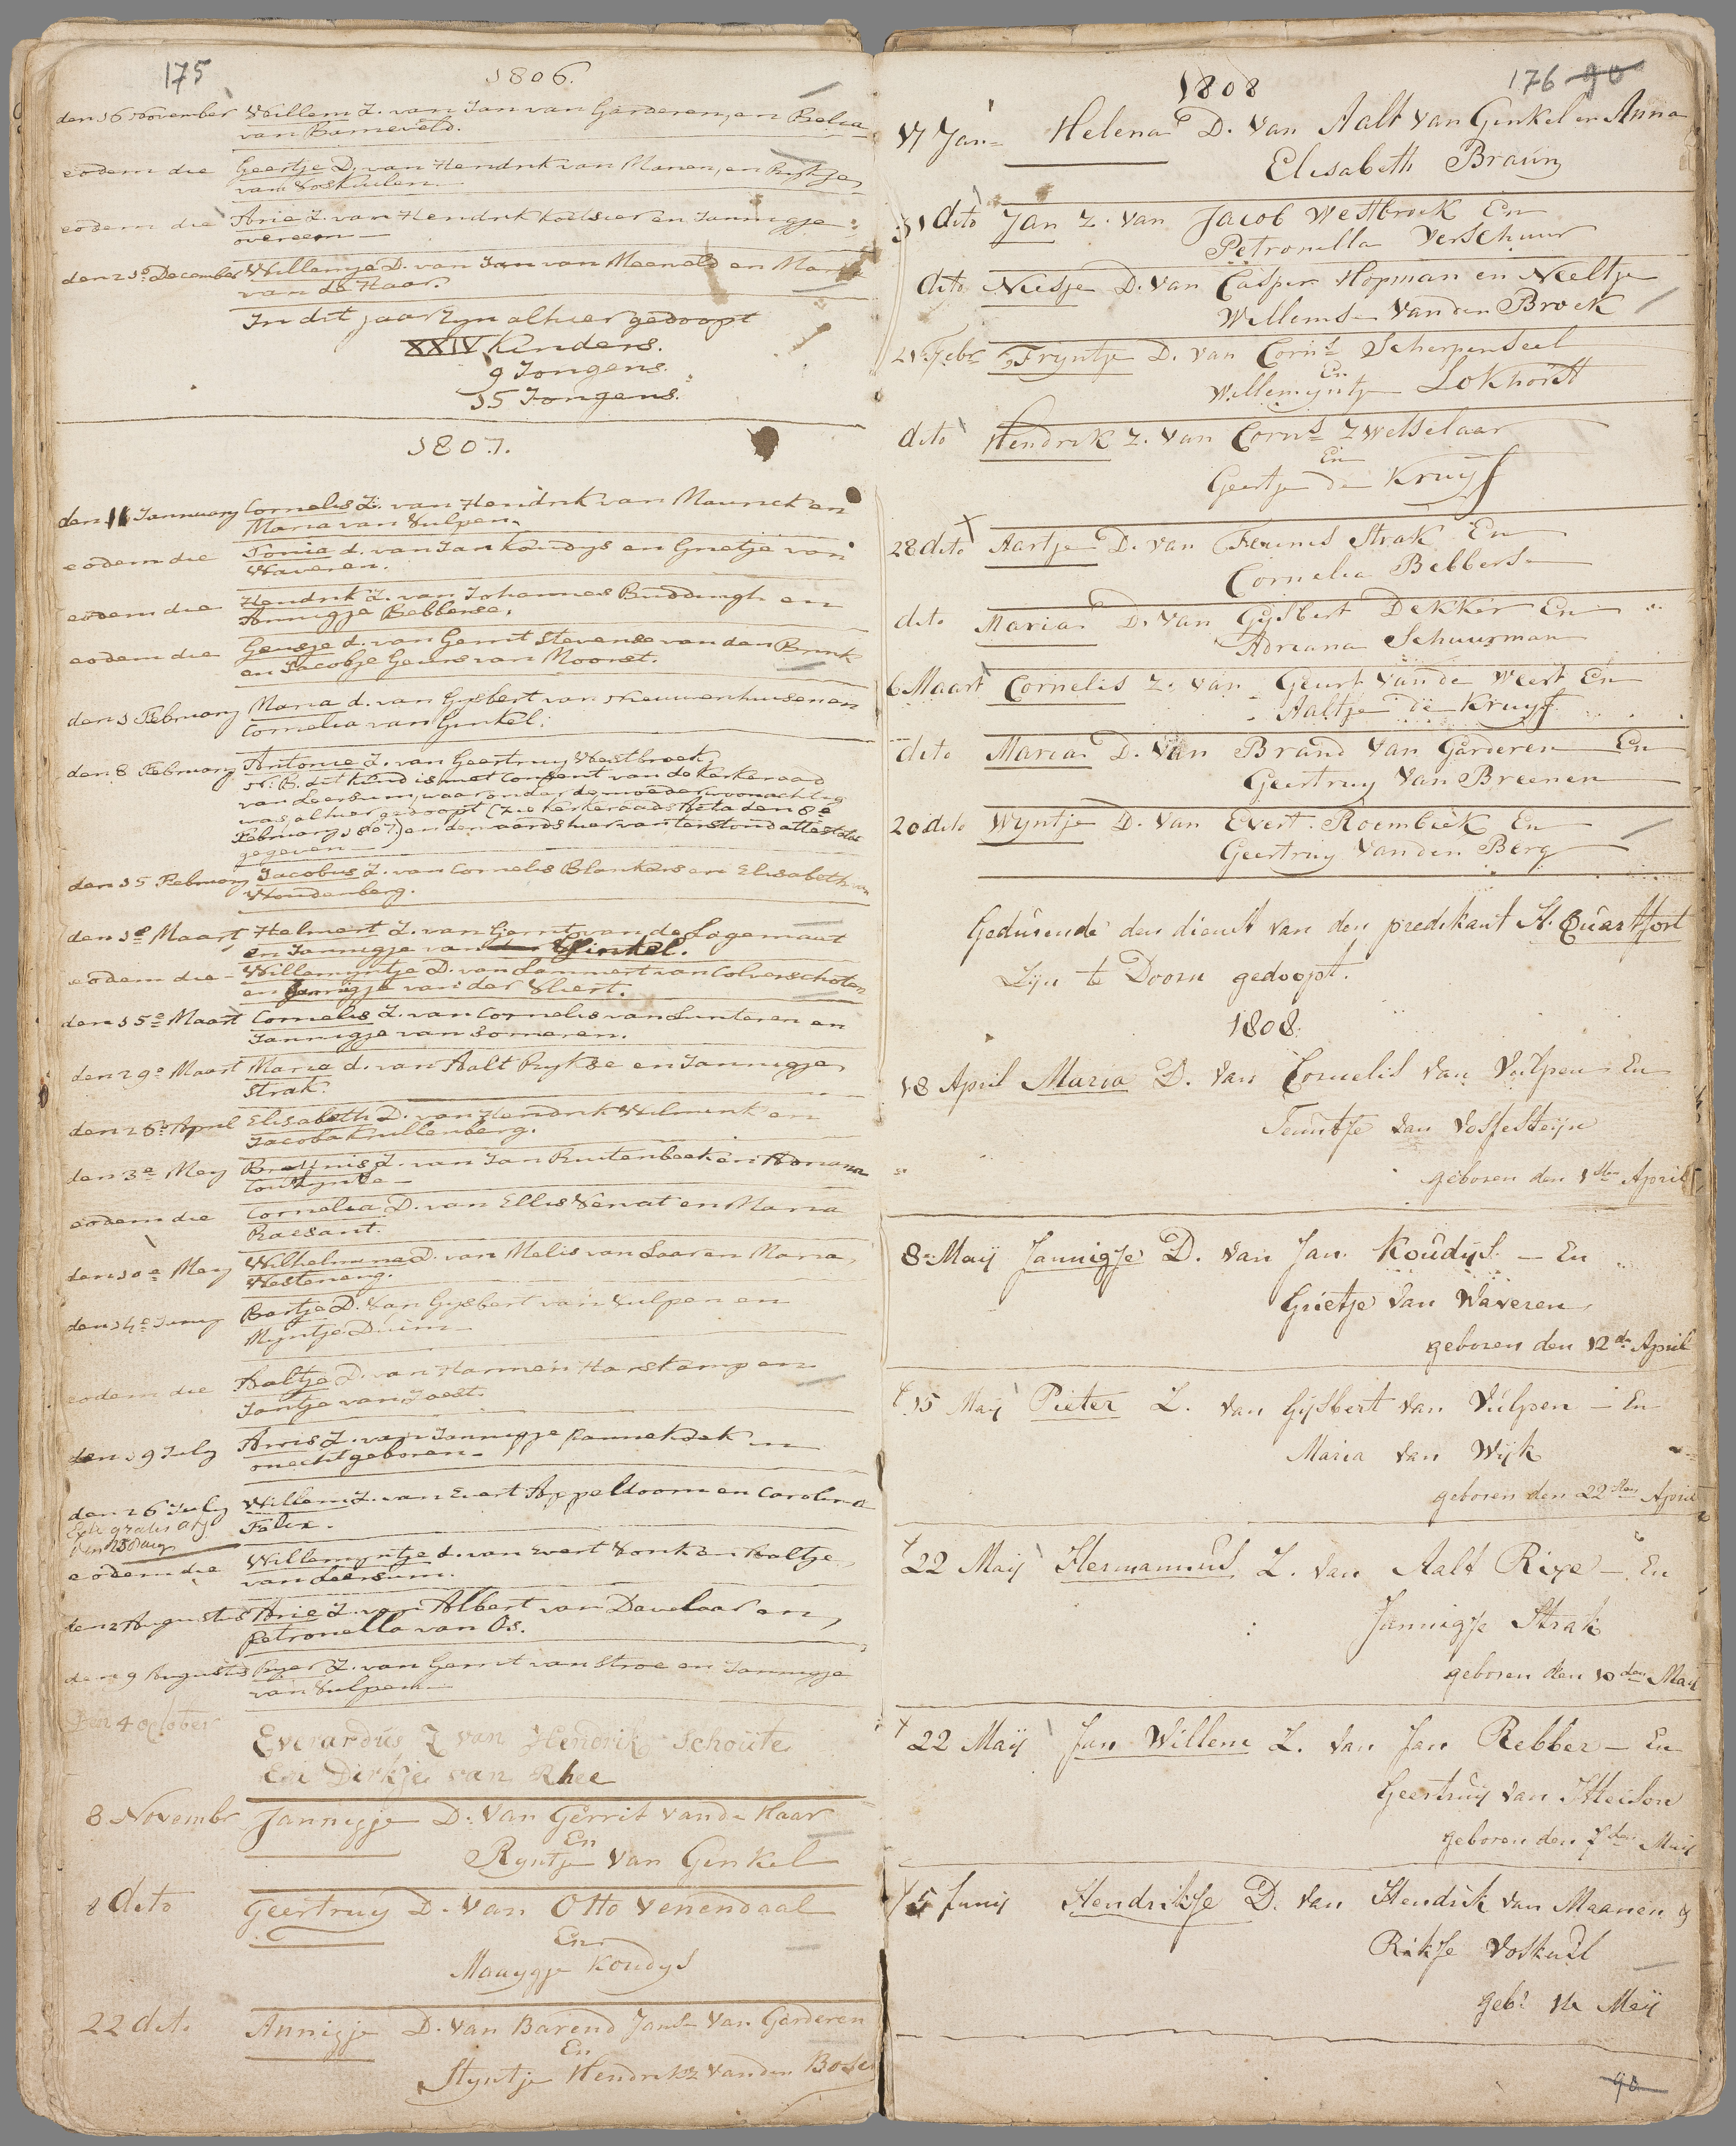 175
1806.
den 16 November Willem Z. van Jan van Garderen, en Belia
van Barneveld.
eodem die Geertje D. van Hendrik van Manen, en Rykje
van Voskuilen
eodem die Arie Z. van Hendrik Koetsier en Jannigje
overeem
den 21e December Willemje D. van Jan van Meerveld en Maria
van de Haar.
In dit jaar zyn alhier gedoopt
XXIV Kinders.
9 Jongens.
15 Jongens.
1807.
den 11 January Cornelis Z. van Hendrik van Maurick en
Maria van Vulpen.
eodem die Tonia d. van Jan Koudys en Grietje van
Waveren.
eodem die Hendrik Z. van Johannes Buddingh en
Annigje Bebberse.
eodem die Geusje d. van Gerrit Stevense van den Brink
en Jacobje Geurs van Moorst.
den 1 February Maria d. van Gysbert van Nieuwenhuisen en
Cornelia van Ginkel.
den 8 February Antonie Z. van Geertruy Westbroek,
N.B. dit kind is met Consent van de Kerkeraad
van Leersum, waaronder de moeder woonachtig
was, alhier gedoopt (zie kerkeraads Acta den 8e
February 1807.) en den aards hiervan terstond attestatie
gegeven
den 15 February Jacobus Z. van Cornelis Blankers en Elisabeth van
Woudenberg.
den 1e Maart Helmert Z. van Gerrit van de Lagemaat
en Jannigje van Ginkel.
eodem die Willemyntje D. van Lammert van Colverschoten
en Jannigje van der Vliert.
den 15e Maart Cornelis Z. van Cornelis van Lunteren en
Jannigje van Someren.
den 29e Maart Maria d. van Aalt Rykse en Jannigje
Strak.
den 26e April Elisabeth D. van Hendrik Wilmink en
Jacoba Kuillenberg.
den 3e Mey Z. van Jan Ruitenbeek en Adriana
eodem die Cornelia D. van Ellis Venat en Maria
Raesant.
den 10e Mey Wilhelmina D. van Melis van Laar en Maria
Westeneng.
den 14e Juny Bartje D. van Gysbert van Vulpen en
Myntje Duim
eodem die Aaltje D. van Harmen Harskamp en
Jantje van Joest.
den 19 July Arris Z. van Jannigje Pannekoek in
onecht geboren
den 26 July Willem Z. van Evert Appeldoorn en Carolina
Felix.
Extr gratis afg
den 25 Aug
eodem die Willemyntje d. van Evert Vonk en Aaltje
van Leersum.
den 2 Augustus Arie Z. van Albert van Davelaar en
Petronella van Os.
den 9 Augustus Ryer Z. van Gerrit van Stroe en Jannigje
van Vulpen
Den 4 October
Everardus Z van Hendrik Schoute
En Dirkje van Rhee
8 Novembr Jannigje D. Van Gerrit Vande Haar
En
Ryntje Van Ginkel
8 dito Geertruy D. Van Otto Venendaal
En
Maaygje Koudys
22 dito Annigje D. Van Barend Janse Van Garderen
En
Styntje Hendriksz Vanden Bosch
1808
176 90
17 Jan Helena D. Van Aalt Van Ginkel en Anna
Elisabeth Braun
31 dito Jan Z. Van Jacob Westbroek En
Petronella Verschuur
dito Neesje D. Van Casper Hopman en Neeltje
Willemse Vanden Broek
21 Febr Fryntje D. Van Corns Scherpenseel
En
Willemyntje Lokhorst
dito Hendrik Z. Van Corns Zwetselaar
En
Geertje de Kruyf
28 dito Aartje D. Van Teunis Strak En
Cornelia Bebberse
dito Maria D. Van Gysbert Dekker En
Adriana Schuurman
6 Maart Cornelis Z. Van Geurt Vande Weert En
Aaltje de Kruyf
dito Maria D. Van Brand Van Garderen En
Geertruy Van Breenen
20 dito Wyntje D. Van Evert Roembiek En
Geertruy Vanden Berg
Gedurende den dienst van den predikant H. Quastfort
Zyn te Doorn gedoopt.
1808.
18 April Maria D. Van Cornelis Van Vulpen En
Teuntje Van Vossesteijn
geboren den 1sten April
8 Maij Jannigje D. Van Jan Koudijs — En
Grietje Van Waveren,
geboren den 12de April
15 Maij Pieter Z. Van Gijsbert Van Vulpen — En
Maria Van Wijk
geboren den 22sten April
22 Maij Hermannus Z. Van Aalt Rixe — En
Jannigje Strak
geboren den 10den Maij
22 Maij Jan Willem Z. Van Jan Rebber — En
Geertruij Van
geboren den 7den Maij
5 Junij Hendrikje D. Van Hendrik Van Maanen &
Rikje Voskuil
geb: 12 Maij
90